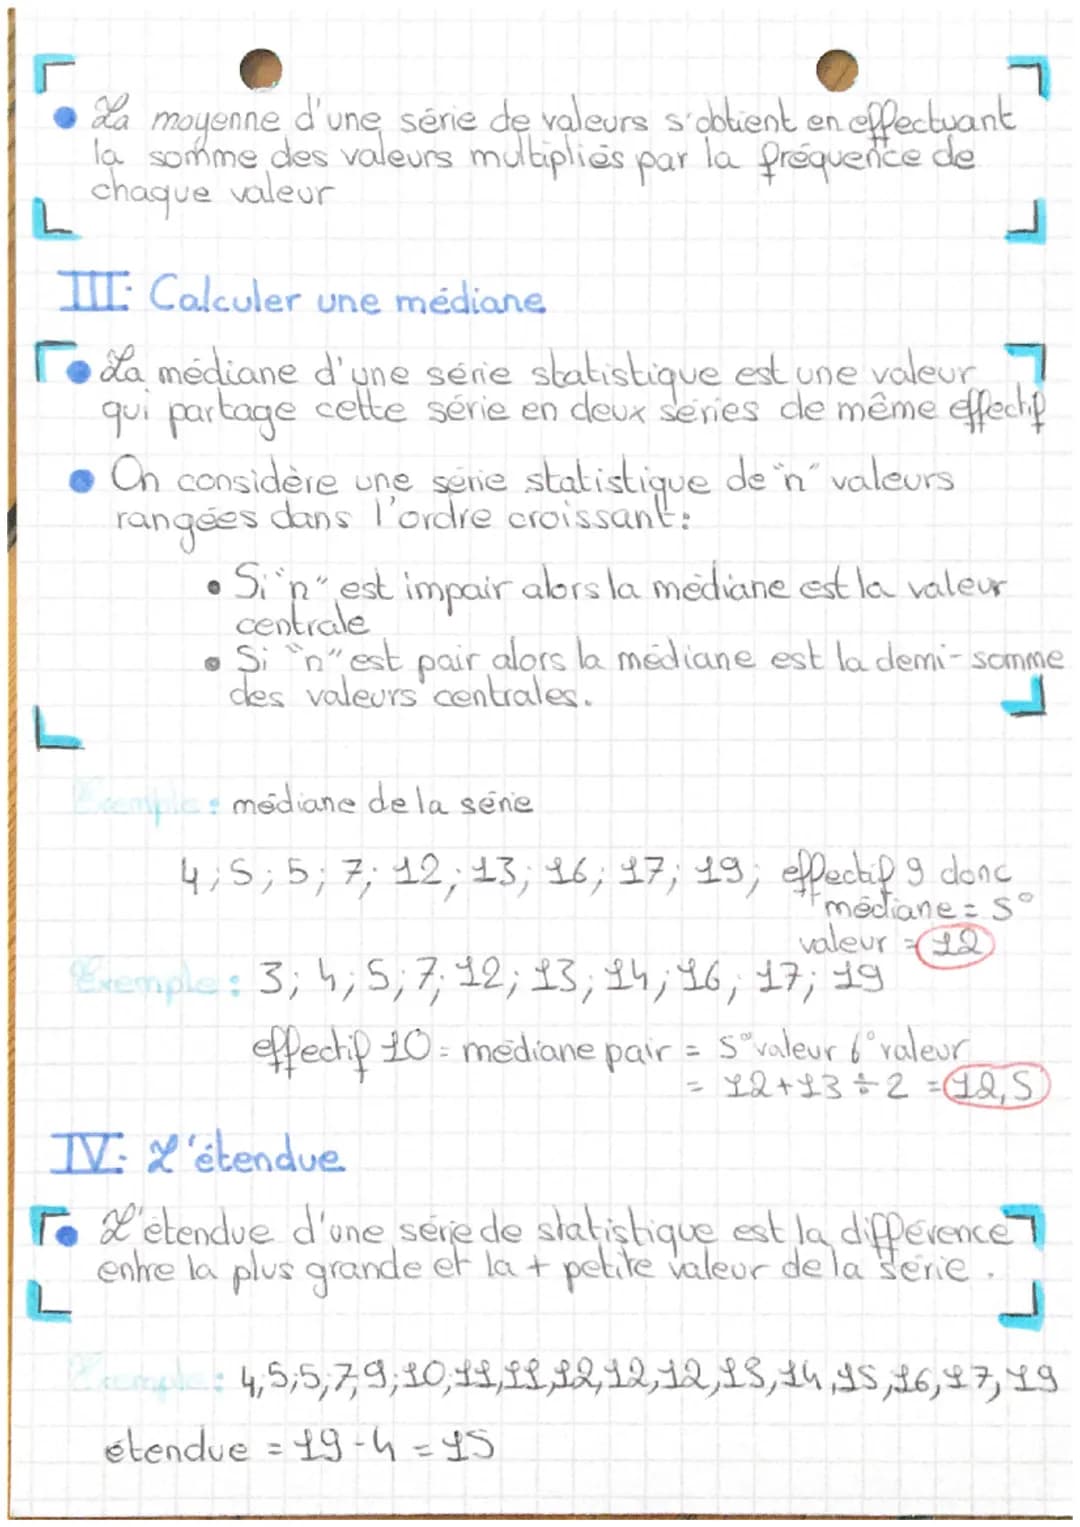 • La moyenne d'une série de valeurs s'obtient en effectuant
la somme des valeurs multipliés par la fréquence de
chaque valeur
III: Calculer une médiane
• La médiane d'une série statistique est une valeur
qui partage cette série en deux séries de même effectif
• On considère une série statistique de "n" valeurs
rangées dans l'ordre croissant:
• Si "n" est impair alors la médiane est la valeur
centrale
• Si "n" est pair alors la médiane est la demi-somme
des valeurs centrales.
Exemple: médiane de la série
4; 5; 5; 7; 12; 13; 16; 17; 19; effectif 9 donc
médiane = 5°
valeur = 12
Exemple: 3; 4; 5; 7; 12; 13; 14; 16; 17; 19
effectif 10 = médiane pair = 5° valeur 6° valeur
= 12+13÷2 = 12,5
IV: L'étendue
• L'étendue d'une série de statistique est la différence
entre la plus grande et la + petite valeur de la série.
Exemple: 4,5,5,7,9,10,11,11,12,12,12,13,14,15,16,17,19
étendue = 19-4 = 15